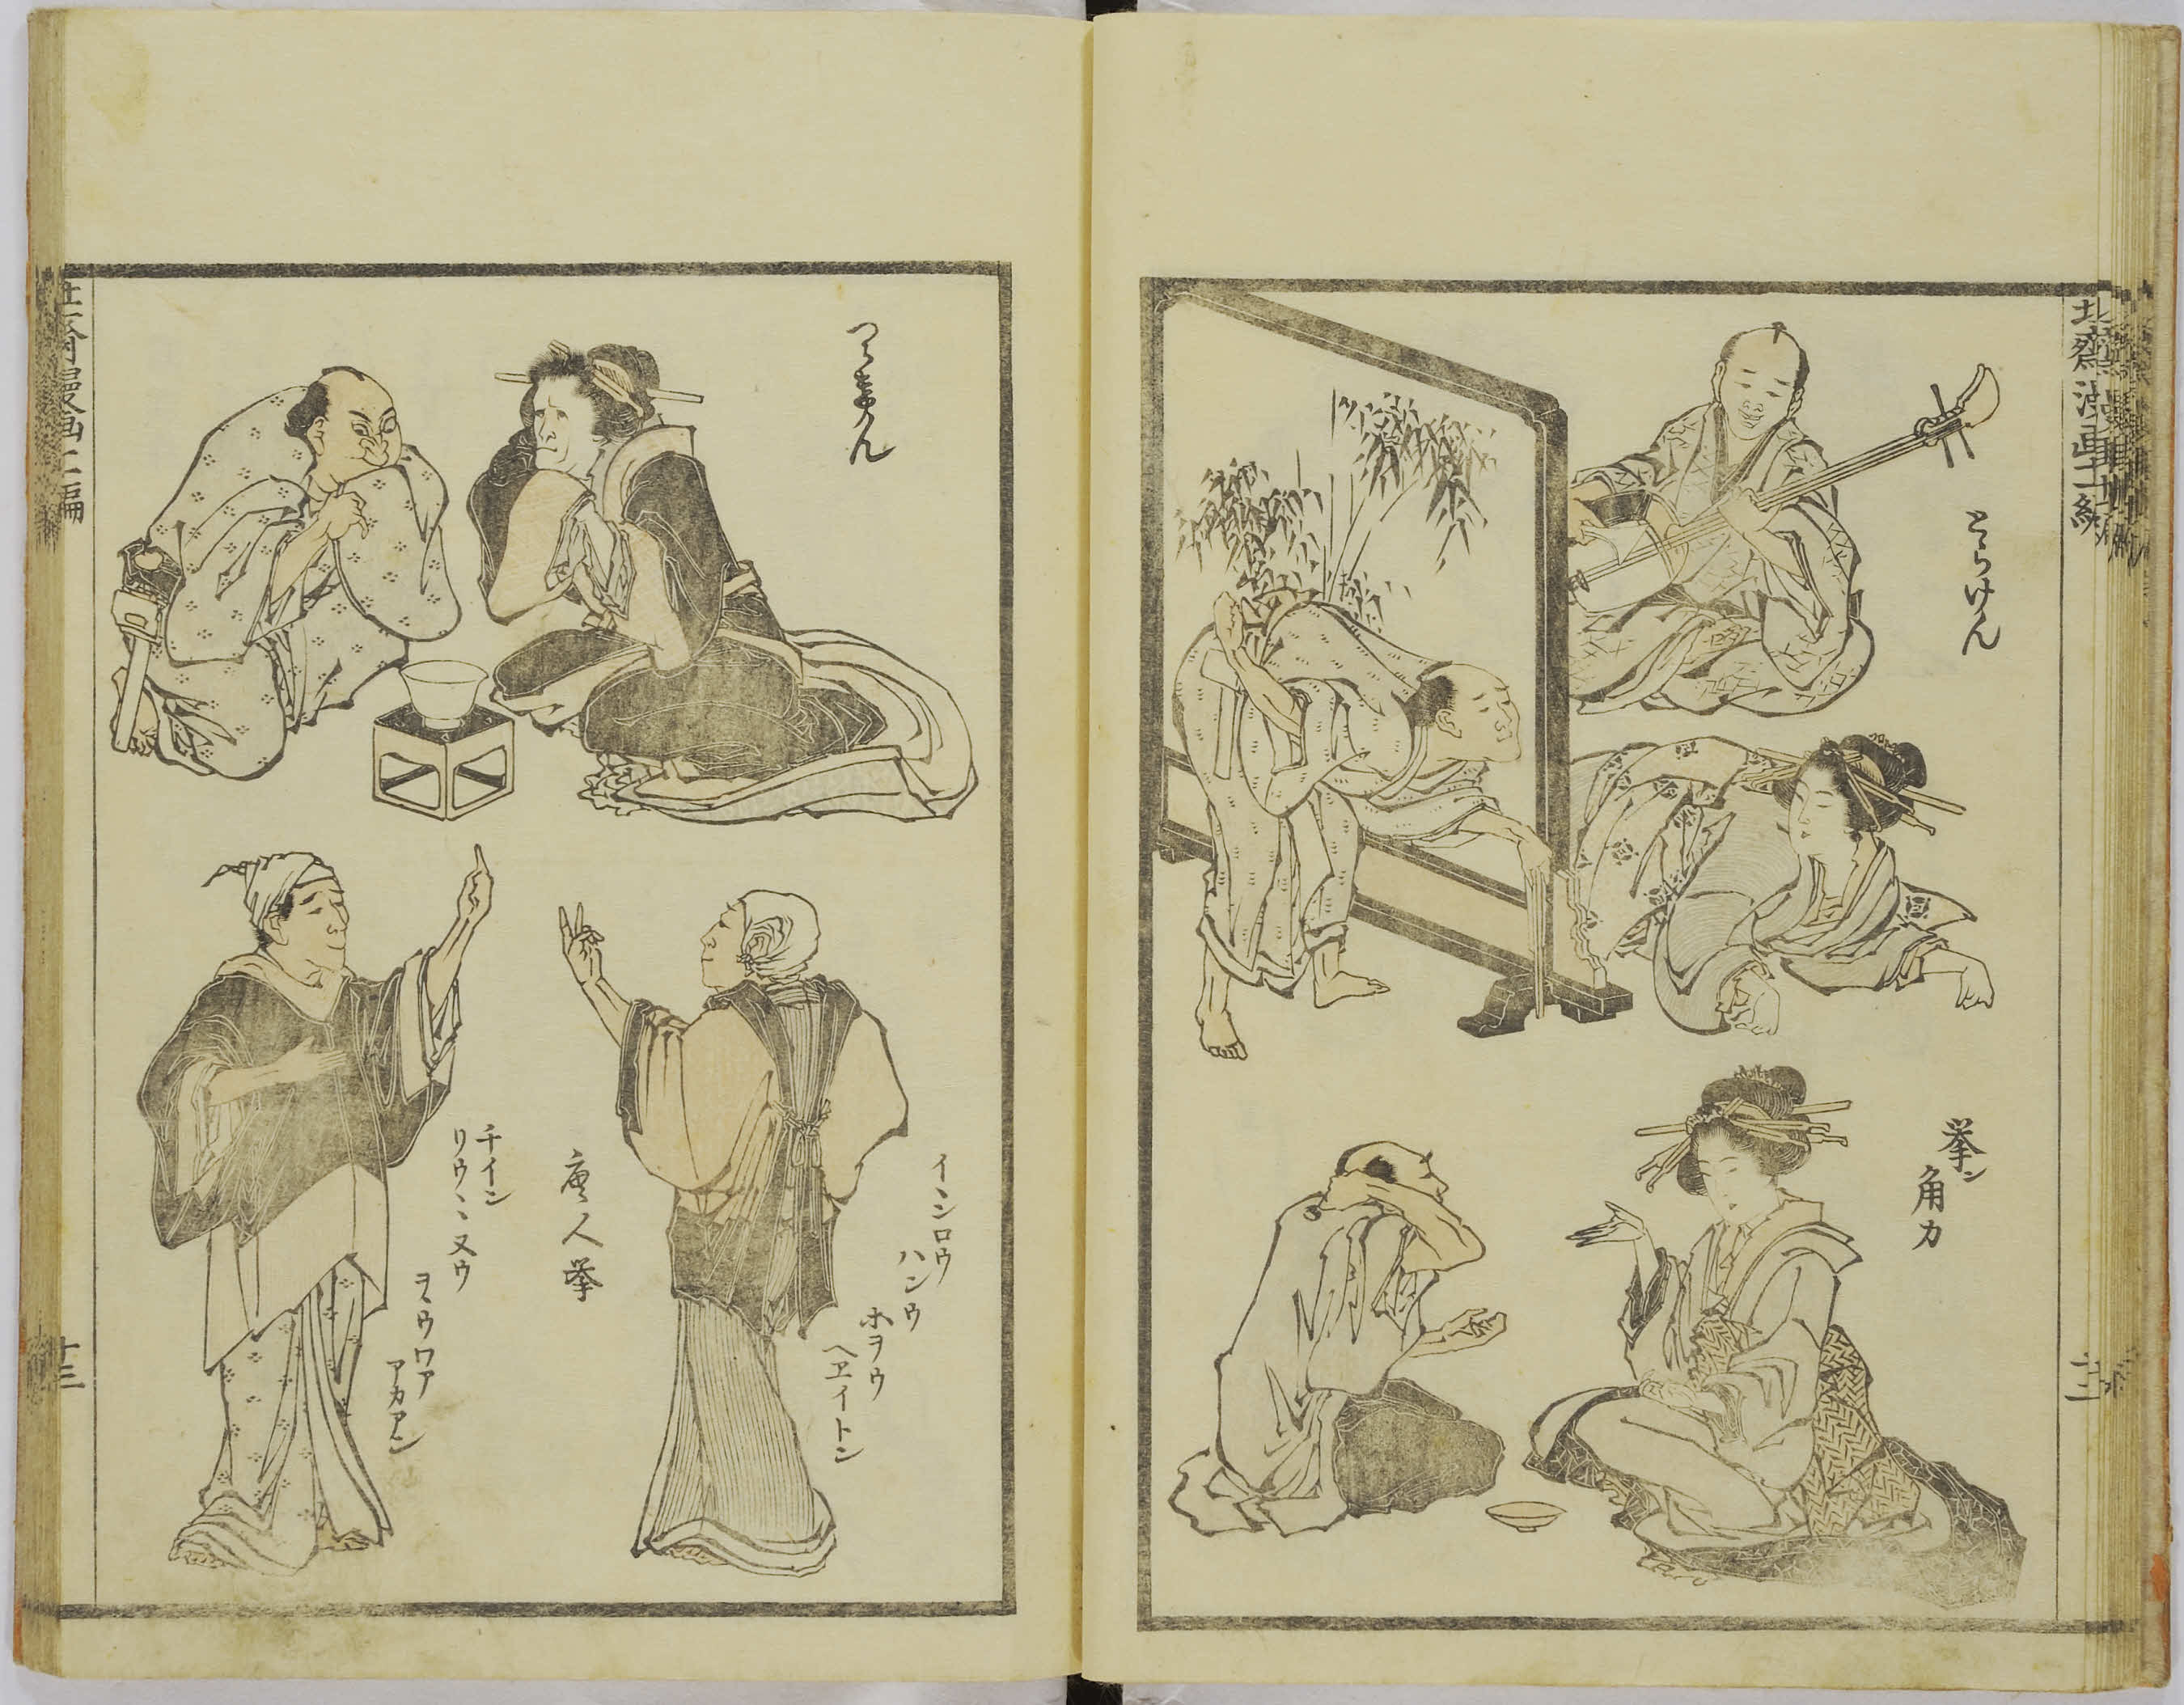 北齋漫画二編
とらけん
拳ン
角力
十二
つらけん
イヽンロウ
ハンウ
ホヲウ
ヘヱイトン
唐人拳
チイン
リウヽヽヌウ
ヲヽウワア
アカアン
北斎漫画二編
十三